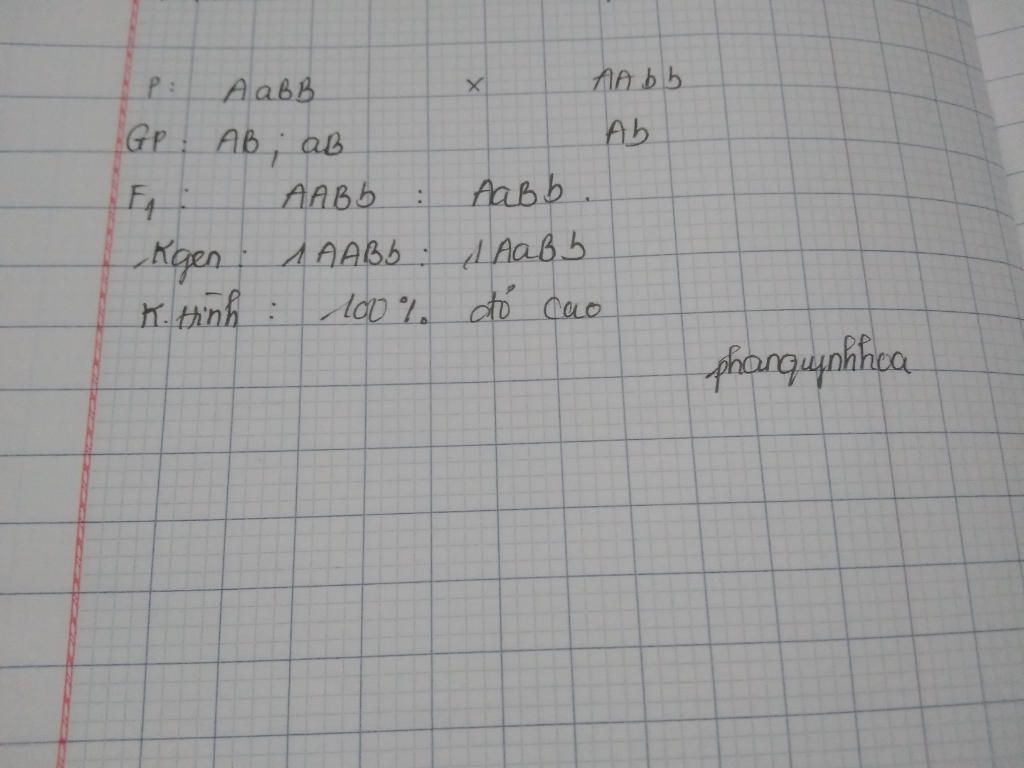 P: AaBB x AAbb
GP: AB; aB Ab
F1: AABb : AaBb.
Kgen: 1AABb: 1AaBb
K.hình: 100% đỏ cao
phanquynhhoa